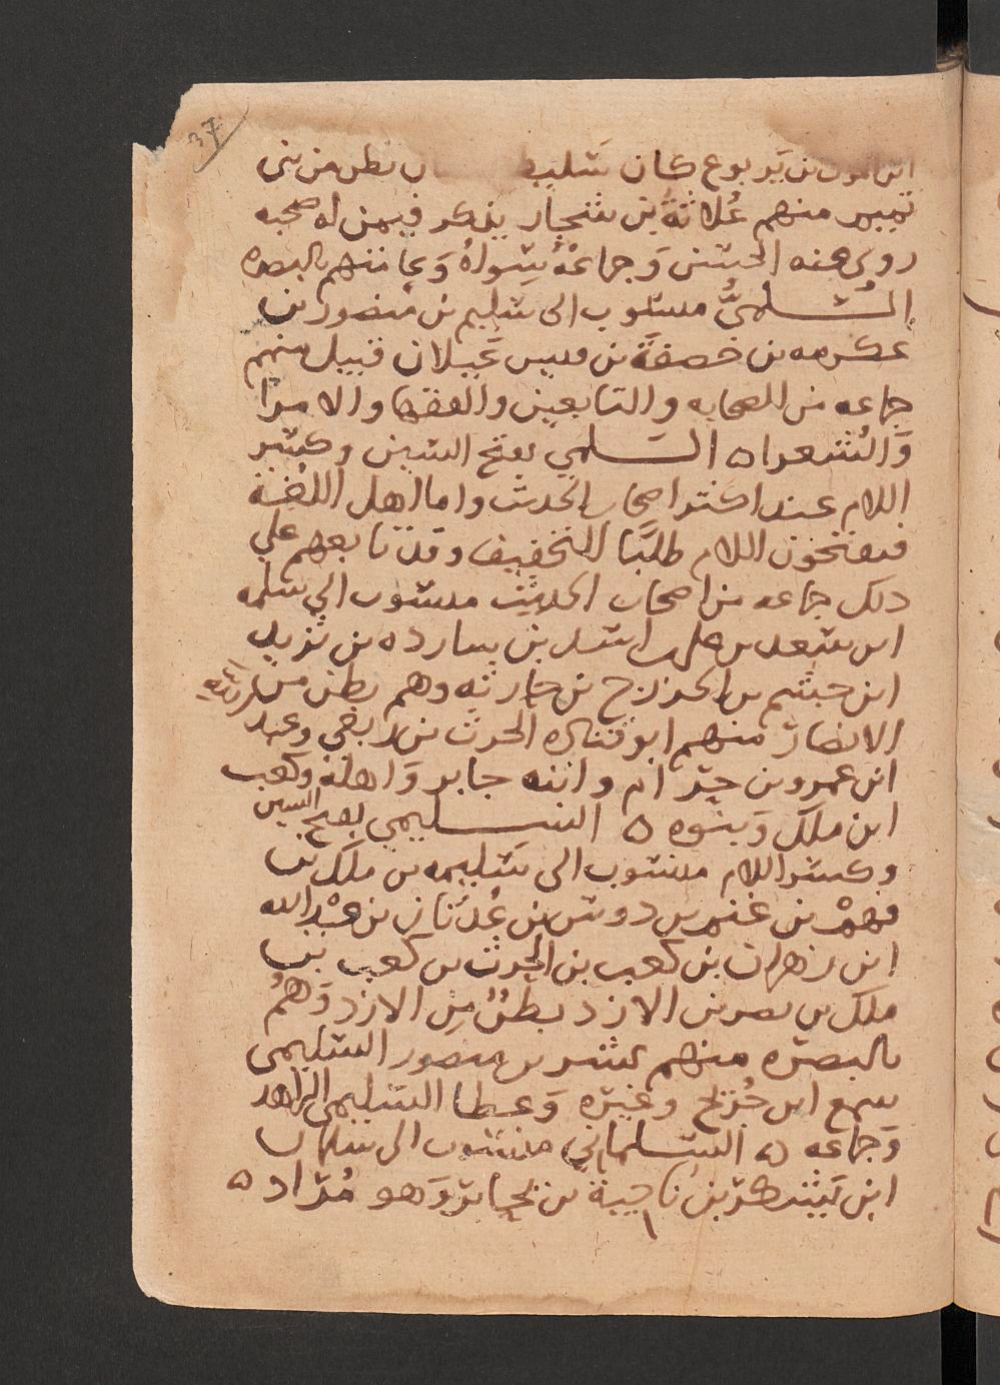 37
ابن يربوع كان بطن من بنى
تميم منهم عُلاثةُ بن شجار يذكر فيمن له صحبه
روى عنه الحسن وَجماعَةٌ سِوَاهُ وَعامتهم بالبصره
السُّلمىُّ منسوب الى سليم بن منصور بن
عكرمه بن خصفَة بن قيس عَيلان قبيل منهم
جماعه من الصحابه والتابعين والفقها والامرا
وَالشعرا ه السَلمي بفتح السين وكسر
اللام عند اكثر اصحاب الحديث واما اهل اللغة
فيفتحون اللام طلبًا للتخفيف وقد تابعهم علي
ذلك جماعه من اصحاب الحديث منسوب الي سلمه
ابن سعد بن علي بن اسد بن سارده بن تزيد
ابن جشم بن الخزرج بن حارثه وهم بطن من
الانصار منهم ابو قتاده الحرث بن ربعي وعبد الله
ابن عمرو بن حرام وابنه جابر وَاهله وكعب
ابن ملك وَبنوه ه السليمي بفتح السين
وكسر اللام منسوب الى سَليمه بن ملك بن
فهمْ بن غنم بن دوس بن عُدثان بن عبْد الله
ابن زهران بن كعب بن الحرث بن كعب بن
ملك بن نصر بن الازد بطنٌ مِن الازد وَهمُ
بالبصره منهم بشر بن منصور السليمى
سمع ابن جُريج وغيره وَعطا السليمى الزاهد
وَجماعه ه السلماني منسوب الى سلمان
ابن يَشكر بن ناجية بن يحابر وَهو مُراد ه